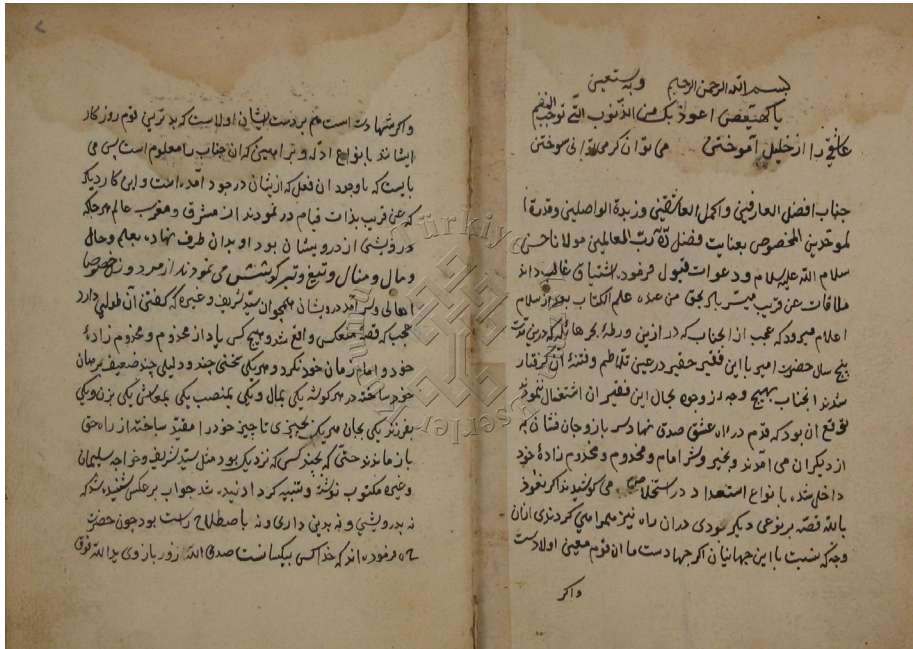 بسم الله الرحمن الرحیم وبه نستعین
یا کهیعص اعوذ بک من الذنوب التی توجب النقم
عاشقی را از خلیل آموختن می توان کرمی لا لی سوختن
جناب افضل العارفین و اکمل العاشقین و زبدة الواصلین و قدوة ا
لموحدین المخصوص بعنایت فضل رب العالمین مولانا حسن
سلام الله علیه سلام و دعوات قبول فرمود اشتیاق غالب داند
ملاقات عن قریب میسر باد بحق من عنده علم الکتاب بعد از سلام
اعلام میرود که عجب از آنجناب که در ازین ورطه بحر هائله که درین مدت
پنج سال حضرت امیر با این فقیر حقیر در عین تلاطم و فتنه آن گرفتار
شدند آنجناب بهیچ وجه ز وجوه بحال این فقیران اشتغال ننمودند
توقع آن بود که قدم در راه عشق صدق نهاد سر باز و جان فشان به
از دیگران می آمدند و بخیر و شر امام و مخدوم و مخدوم زاده خود
داخل شده با انواع استعداد در استخلاص می کوشیدند اگر نعوذ
بالله قصه بر نوعی دیگر بودی در آن راه نیز همراهی کردندی از آن
وجه که بنسبت با این جهانیان اگر جهادست ما آن قوم معین اولادست
واگر
واگر شهادت است هم بر دست ایشان اولاست که بدترین قوم روزگار
ایشانند با نواع ادله و براهین که آن جناب را معلوم است پس می
بایست که باوجود آن فعل که از یشان در وجود آمده است و این کار دیگر
که عن قریب بذات قیام در نمودند از مشرق و مغرب عالم هرجا که
درویشی از درویشان بود او بدان طرف نهاده بعلم و حال
و مال و منال و تیغ و تبر کوشش می نمودند از مرد و زن خصوصا
اهالی و سرآمد درویشان همچوان سید شریف و غیره که کفتن آن طولی دارد
عجب که قصه منعکس واقع شد و هیچ کس یاد از مخدوم و مخدوم زاده
خود و امام زمان خود نکرد و هر یکی سخنی چند و دلیلی چند ضعیف برهان
خود ساخته در هر کوشه یکی بمال و یکی بمنصب یکی بمعاش یکی بزن و یکی
بفرزند یکی بجان هر یک بچیزی ناچیز خود را مقید ساخته از راه حق
باز ماندند حتی که بچند کسی که نزدیک بود مثل سید شریف و خواجه سلیمان
و غیره مکتوب نوشته و تنبیه کردانید شد جواب بر عکس شنیده شد که
نه بدرویشی و نه بدین داری و نه باصطلاح راست بود چون حضرت
فرموده اند که خدا کسی بیکسانست صدق الله زور بازوی ید الله فوق